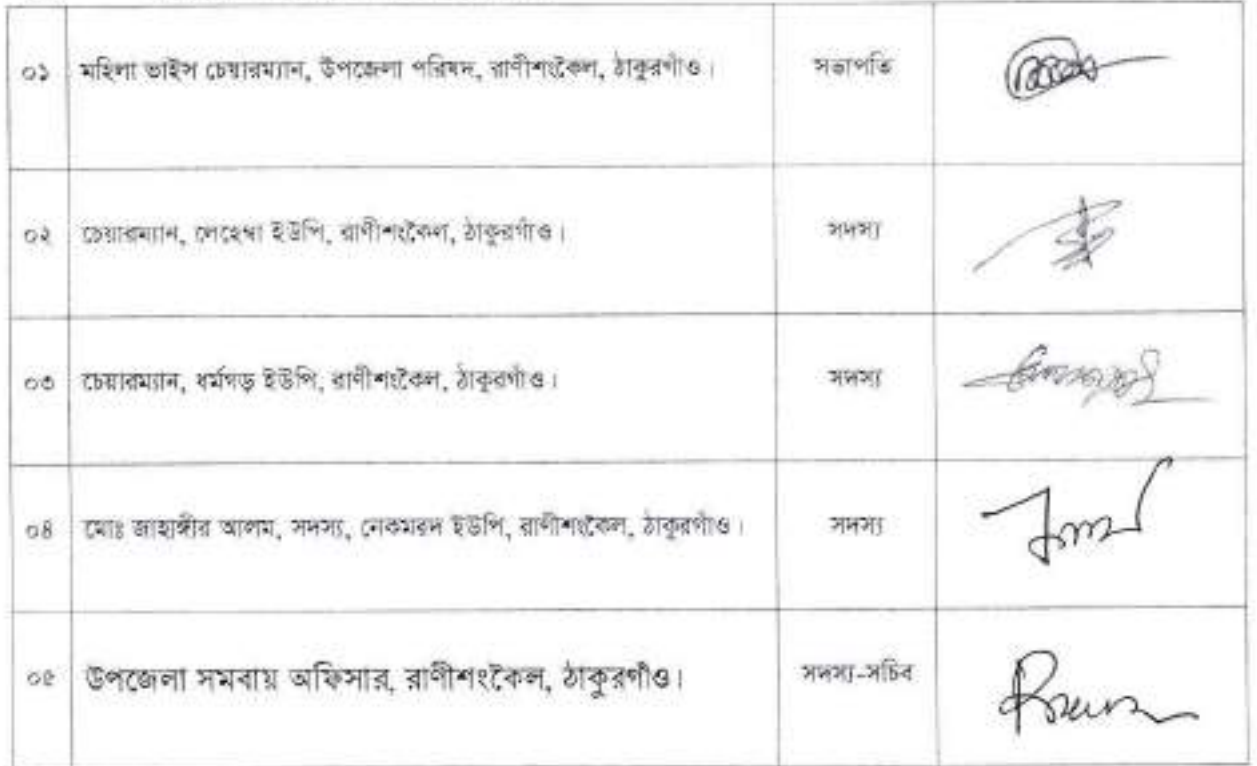 ০১ মহিলা ভাইস চেয়ারম্যান, উপজেলা পরিষদ, রাণীশংকৈল, ঠাকুরগাঁও। সভাপতি
০২ চেয়ারম্যান, লেহেম্বা ইউপি, রাণীশংকৈল, ঠাকুরগাঁও। সদস্য
০৩ চেয়ারম্যান, ধর্মগড় ইউপি, রাণীশংকৈল, ঠাকুরগাঁও। সদস্য
০৪ মোঃ জাহাঙ্গীর আলম, সদস্য, নেকমরদ ইউপি, রাণীশংকৈল, ঠাকুরগাঁও। সদস্য
০৫ উপজেলা সমবায় অফিসার, রাণীশংকৈল, ঠাকুরগাঁও। সদস্য-সচিব